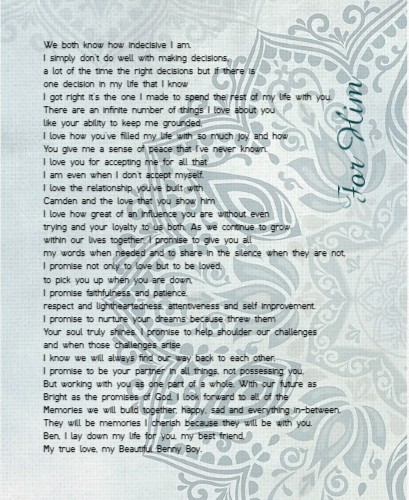 We both know how indecisive I am.
I simply don't do well with making decisions,
a lot of the time the right decisions but if there is
one decision in my life that I know
I got right it's the one I made to spend the rest of my life with you.
There are an infinite number of things I love about you
like your ability to keep me grounded,
I love how you've filled my life with so much joy and how
You give me a sense of peace that I've never known.
I love you for accepting me for all that
I am even when I don't accept myself.
I love the relationship you've built with
Camden and the love that you show him
I love how great of an influence you are without even
trying and your loyalty to us both. As we continue to grow
within our lives together, I promise to give you all
my words when needed and to share in the silence when they are not,
I promise not only to love but to be loved,
to pick you up when you are down,
I promise faithfulness and patience,
respect and lightheartedness, attentiveness and self improvement.
I promise to nurture your dreams because threw them
Your soul truly shines. I promise to help shoulder our challenges
and when those challenges arise
I know we will always find our way back to each other.
I promise to be your partner in all things, not possessing you,
But working with you as one part of a whole. With our future as
Bright as the promises of God, I look forward to all of the
Memories we will build together, happy, sad and everything in-between,
They will be memories I cherish because they will be with you.
Ben, I lay down my life for you, my best friend,
My true love, my Beautiful Benny Boy.
For Him